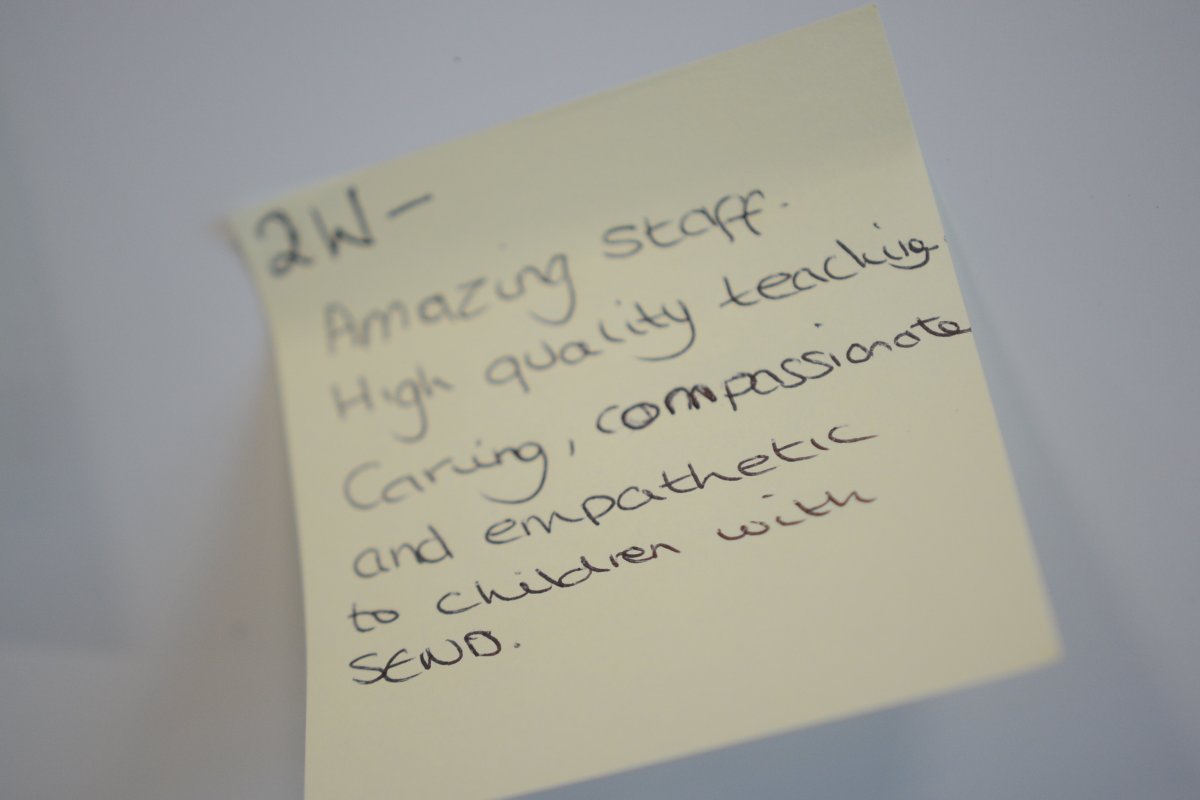 2W-
Amazing staff.
High quality teaching.
Caring, compassionate
and empathetic
to children with
SEND.